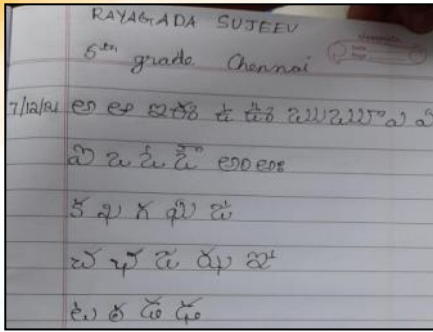 RAYAGADA SUJEEV
5th grade Chennai
7/12/21 అ ఆ ఇ ఈ ఉ ఊ ఋ ౠ ఎ ఏ
ఐ ఒ ఓ ఔ అం అః
క ఖ గ ఘ ఙ
చ ఛ జ ఝ ఞ
ట ఠ డ ఢ